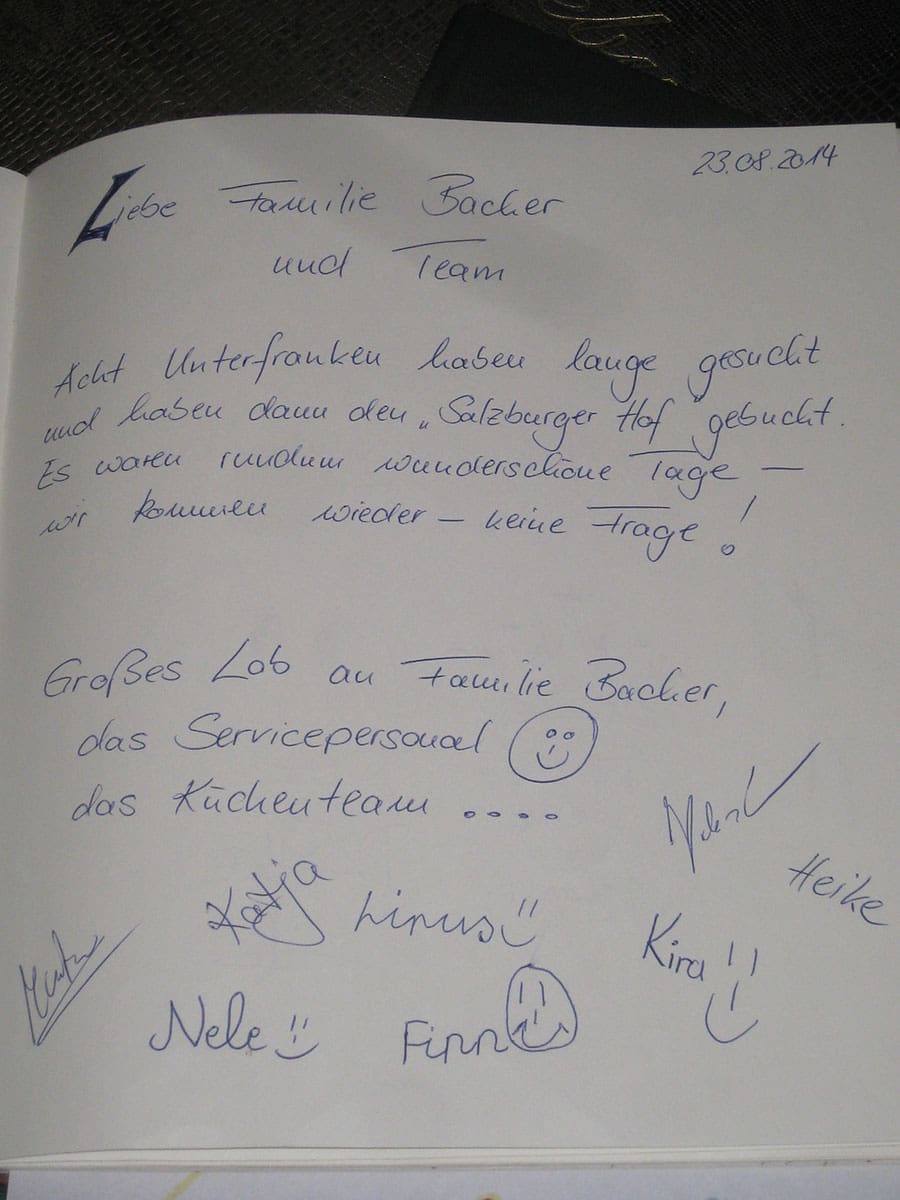 23.08.2014
Liebe Familie Bacher
und Team
Acht Unterfranken haben lange gesucht
und haben dann den „Salzburger Hof" gebucht.
Es waren rundum wunderschöne Tage —
wir kommen wieder – keine Frage!
Großes Lob an Familie Bacher,
das Servicepersonal
das Küchenteam ....
Heike
Katja Linus
Kira
Nele Finn